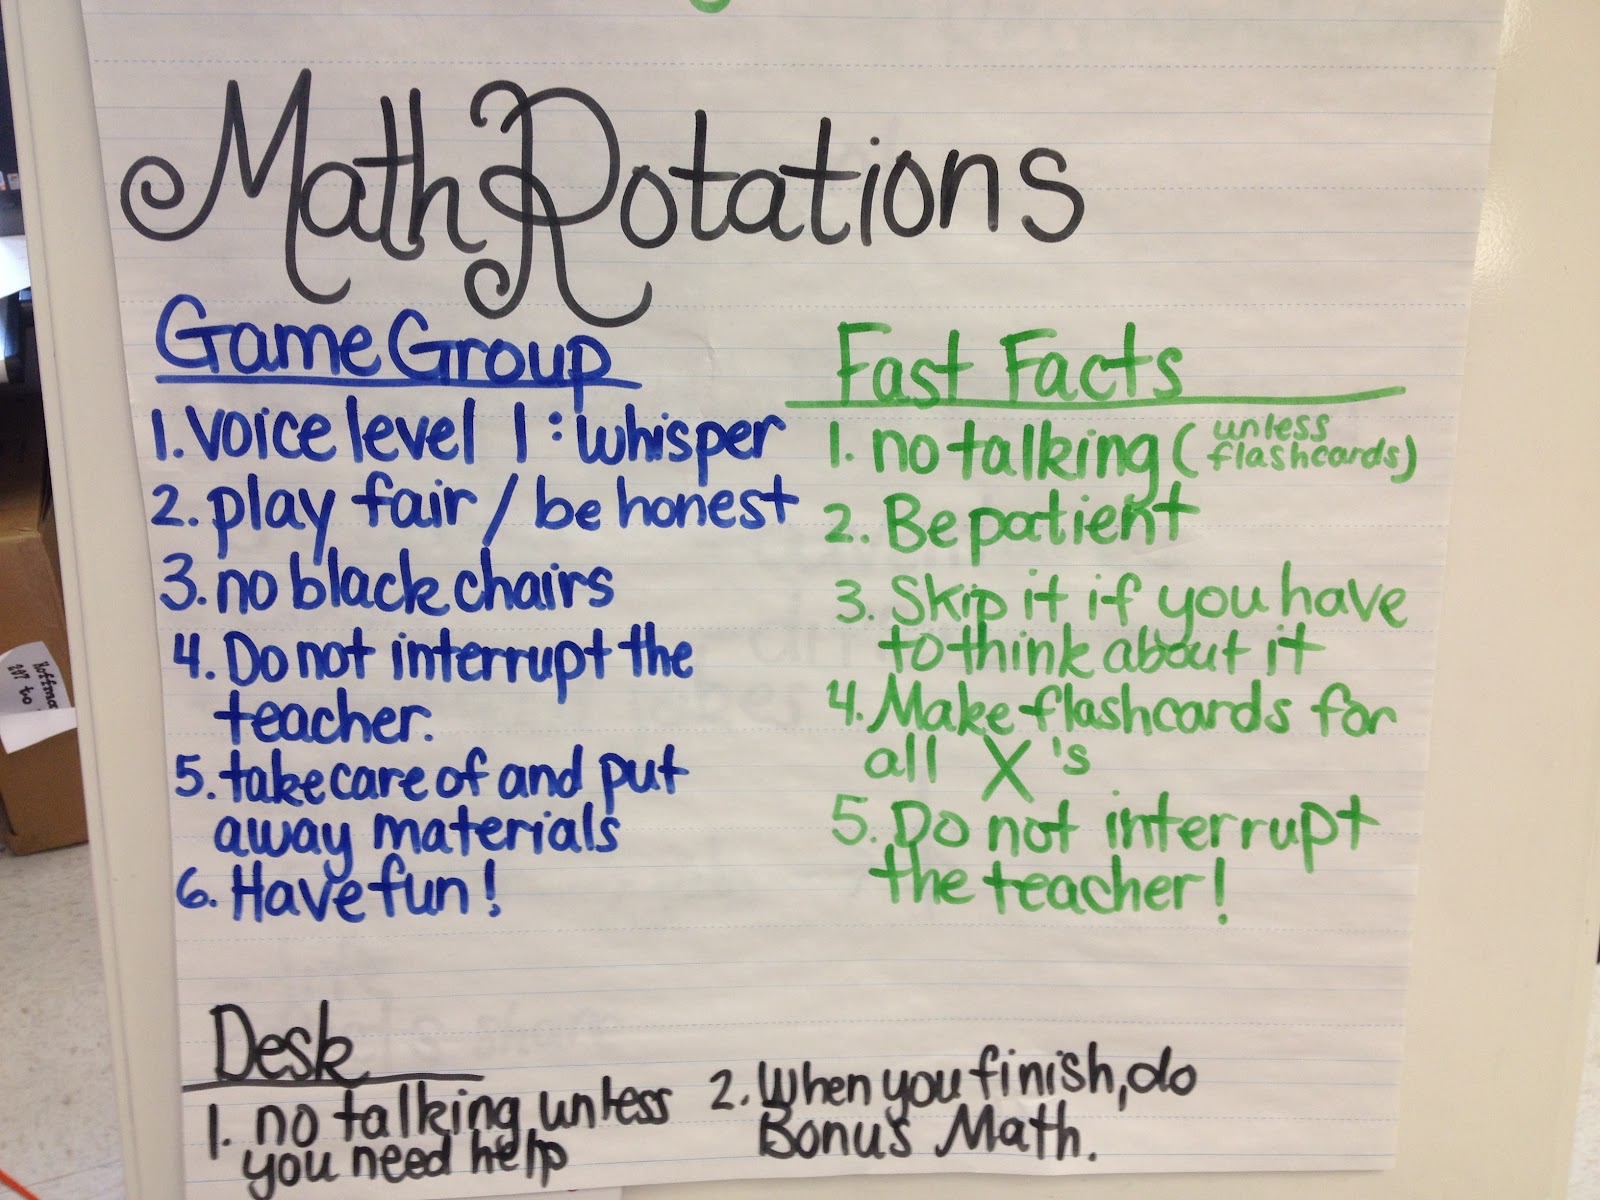 Math Rotations
Game Group
1. voice level 1 : whisper
2. play fair / be honest
3. no black chairs
4. Do not interrupt the
teacher.
5. take care of and put
away materials
6. Have fun!
Fast Facts
1. no talking (unless
flashcards)
2. Be patient
3. Skip it if you have
to think about it
4. Make flashcards for
all X's
5. Do not interrupt
the teacher!
Desk
1. no talking unless
you need help
2. When you finish, do
Bonus Math.